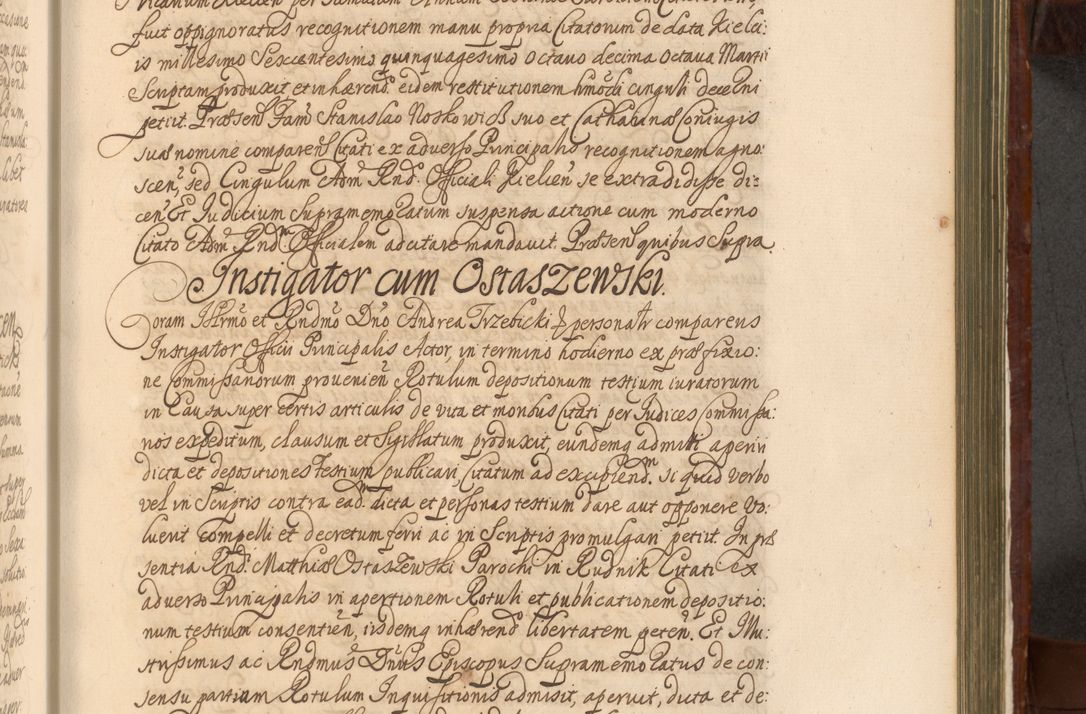 fuit oppignoratus recognitionem manu propria Citatorum de data Kielci:
is millesimo Sescentesimo quinquagesimo octauo decima octaua Martii
Scriptam produxit et inhærend. eidem restitutionem hmodi cinguli decerni
petiit. Præsen Fam Stanislao Noskowicz suo et Catharinæ Coniugis
suæ nomine comparen Citati ex aduerso Principalis recognitionem agno:
scen, sed Cingulum Adm Rnd. Officiali Kielien se extradidisse di:
cen Et Iudicium Supramemoratum suspensa actione cum moderno
Citato Adm Rndm Officialem adcitare mandauit. Præsen quibus Supra.
Instigator cum Ostaszewski.
Coram Illrmo et Rndmo Dno Andrea Trzebicki personalr comparens
Instigator Officii Principalis Actor, in termino hodierno ex præfixio:
ne Commissariorum prouenien Rotulum depositionum testium iuratorum
in Causa super certis articulis de vita et moribus Citati per Iudices Commissa:
rios expeditum, clausum et Sigillatum produxit, eundemq admitti aperiri
dicta et depositiones Testium publicari Citatum ad excipiendm si quid verbo
vel in Scriptis contra eadm dicta et personas testium dare aut opponere vo:
luerit compelli et decretum ferri ac in Scriptis promulgari petiit. In præ
sentia Rnd. Matthiæ Ostaszewski Parochi in Rudnik Citati ex
aduerso Principalis in apertionem Rotuli et publicationem depositio:
num testium consentien, iisdemq inhærend libertatem peten. Et Illu:
strissimus ac Rndmus Dnus Episcopus Supramemoratus de con:
sensu partium Rotulum Inquisitionis admisit, aperuit, dicta et de: